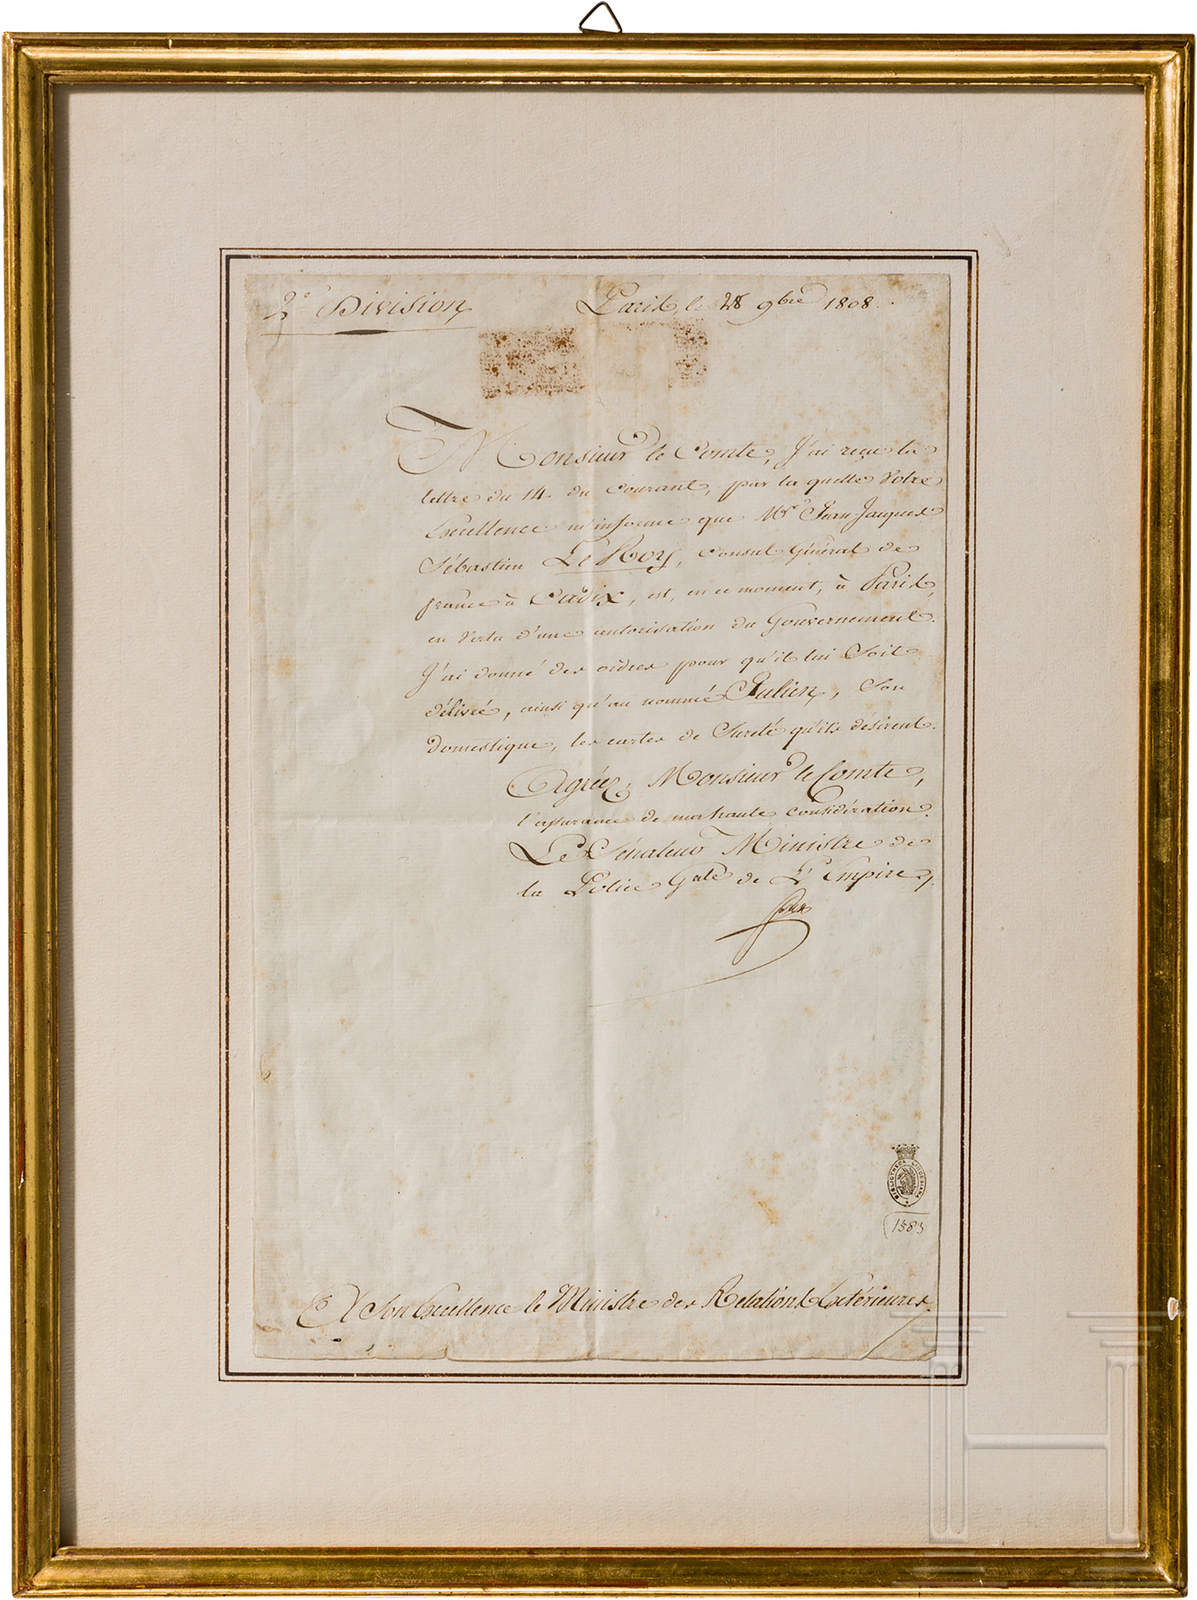 2e Division
Paris, le 28 9bre 1808.
Monsieur le Comte, J'ai reçu la
lettre du 14. du Courant, par la quelle Votre
Excellence m'informe que Mr. Jean Jacques
Sébastien Le Roy, Consul Général de
france à Cadix, est, en ce moment, à Paris,
en Vertu d'une autorisation du Gouvernement.
J'ai donné des ordres pour qu'il lui Soit
délivré, ainsi qu'au nommé Julien, Son
domestique, les cartes de Sureté qu'ils désirent.
Agréez, Monsieur le Comte,
l'assurance de ma haute considération.
Le Sénateur Ministre de
la Police Gale de L'Empire,
BIBLIOTHECA
1583
A Son Excellence le Ministre des Relations Extérieures.